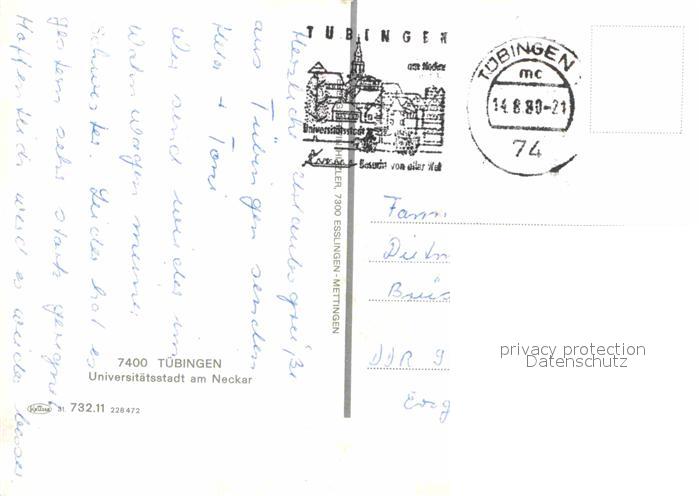 Herzliche Urlaubsgrüße
aus Tübingen senden
Hela + Toni
Wir sind wieder im
Wohnwagen meiner
Schwester. Leider hat es
gestern sehr stark geregnet
Hoffentlich wird es wieder besser
TÜBINGEN
am Neckar
Universitätsstadt
Besucht von aller Welt
TÜBINGEN
mc
14.8.80-21
74
7300 ESSLINGEN-METTINGEN
Fam
Dietm
DDR 9
7400 TÜBINGEN
Universitätsstadt am Neckar
St. 732.11 228472
privacy protection
Datenschutz